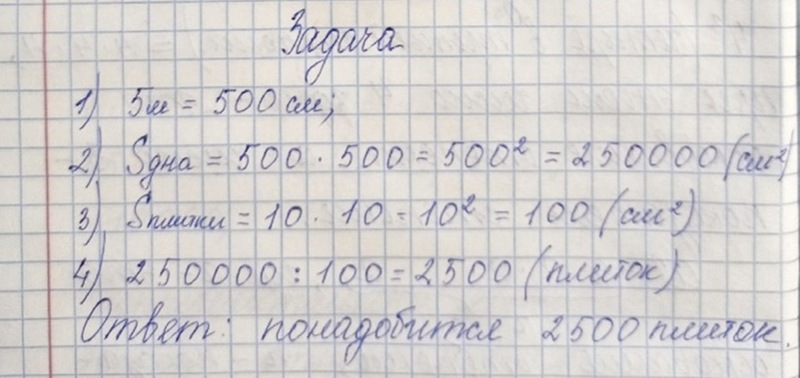 Задача
1) 5м = 500 см;
2) Sдна = 500 · 500 = 500² = 250000 (см²)
3) Sплитки = 10 · 10 = 10² = 100 (см²)
4) 250000 : 100 = 2500 (плиток)
Ответ: понадобится 2500 плиток.